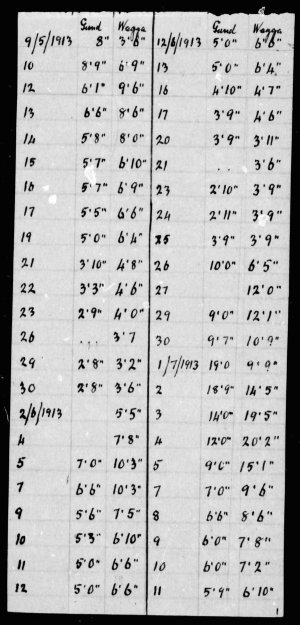 Gund Wagga
9/5/1913 8" 3'6"
10 8'9" 6'9"
12 6'1" 9'6"
13 6'6" 8'6"
14 5'8" 8'0"
15 5'7" 6'10"
16 5'7" 6'9"
17 5'5" 6'6"
19 5'0" 6'4"
21 3'10" 4'8"
22 3'3" 4'6"
23 2'9" 4'0"
26 ... 3'7
29 2'8" 3'2"
30 2'8" 3'6"
2/6/1913 5'5"
4 7'8"
5 7'0" 10'3"
7 6'6" 10'3"
9 5'6" 7'5"
10 5'3" 6'10"
11 5'0" 6'6"
12 5'0" 6'6"
Gund Wagga
12/6/1913 5'0" 6'6"
13 5'0" 6'4"
16 4'10" 4'7"
17 3'9" 4'6"
20 3'9" 3'11"
21 .. 3'6"
23 2'10" 3'9"
24 2'11" 3'9"
25 3'9" 3'9"
26 10'0" 6'5"
27 12'0"
29 9'0" 12'1"
30 9'7" 10'9"
1/7/1913 19'0 9'9"
2 18'9" 14'5"
3 14'0" 19'5"
4 12'0" 20'2"
5 9'6" 15'1"
7 7'0" 9'6"
8 6'6" 8'6"
9 6'0" 7'8"
10 6'0" 7'2"
11 5'9" 6'10"